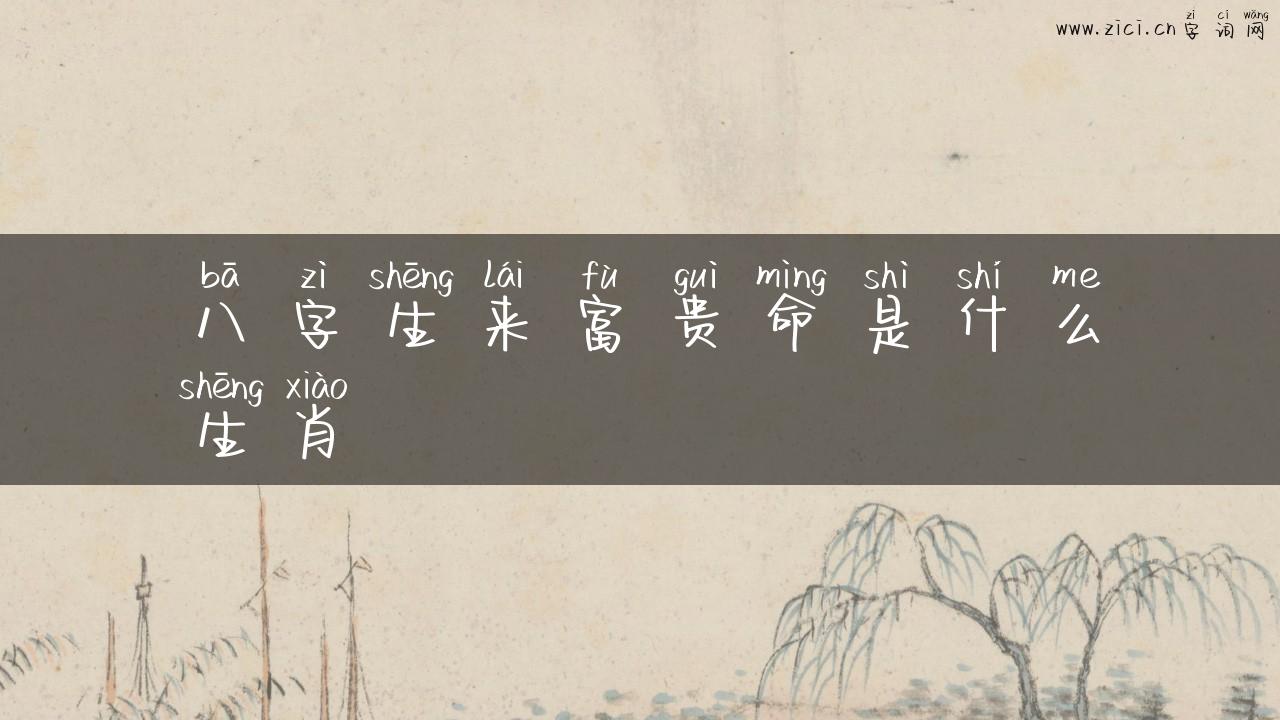 zì cí wǎng
www.zici.cn 字 词 网
bā zì shēng lái fù guì mìng shì shí me
八 字 生 来 富 贵 命 是 什 么
shēng xiào
生 肖